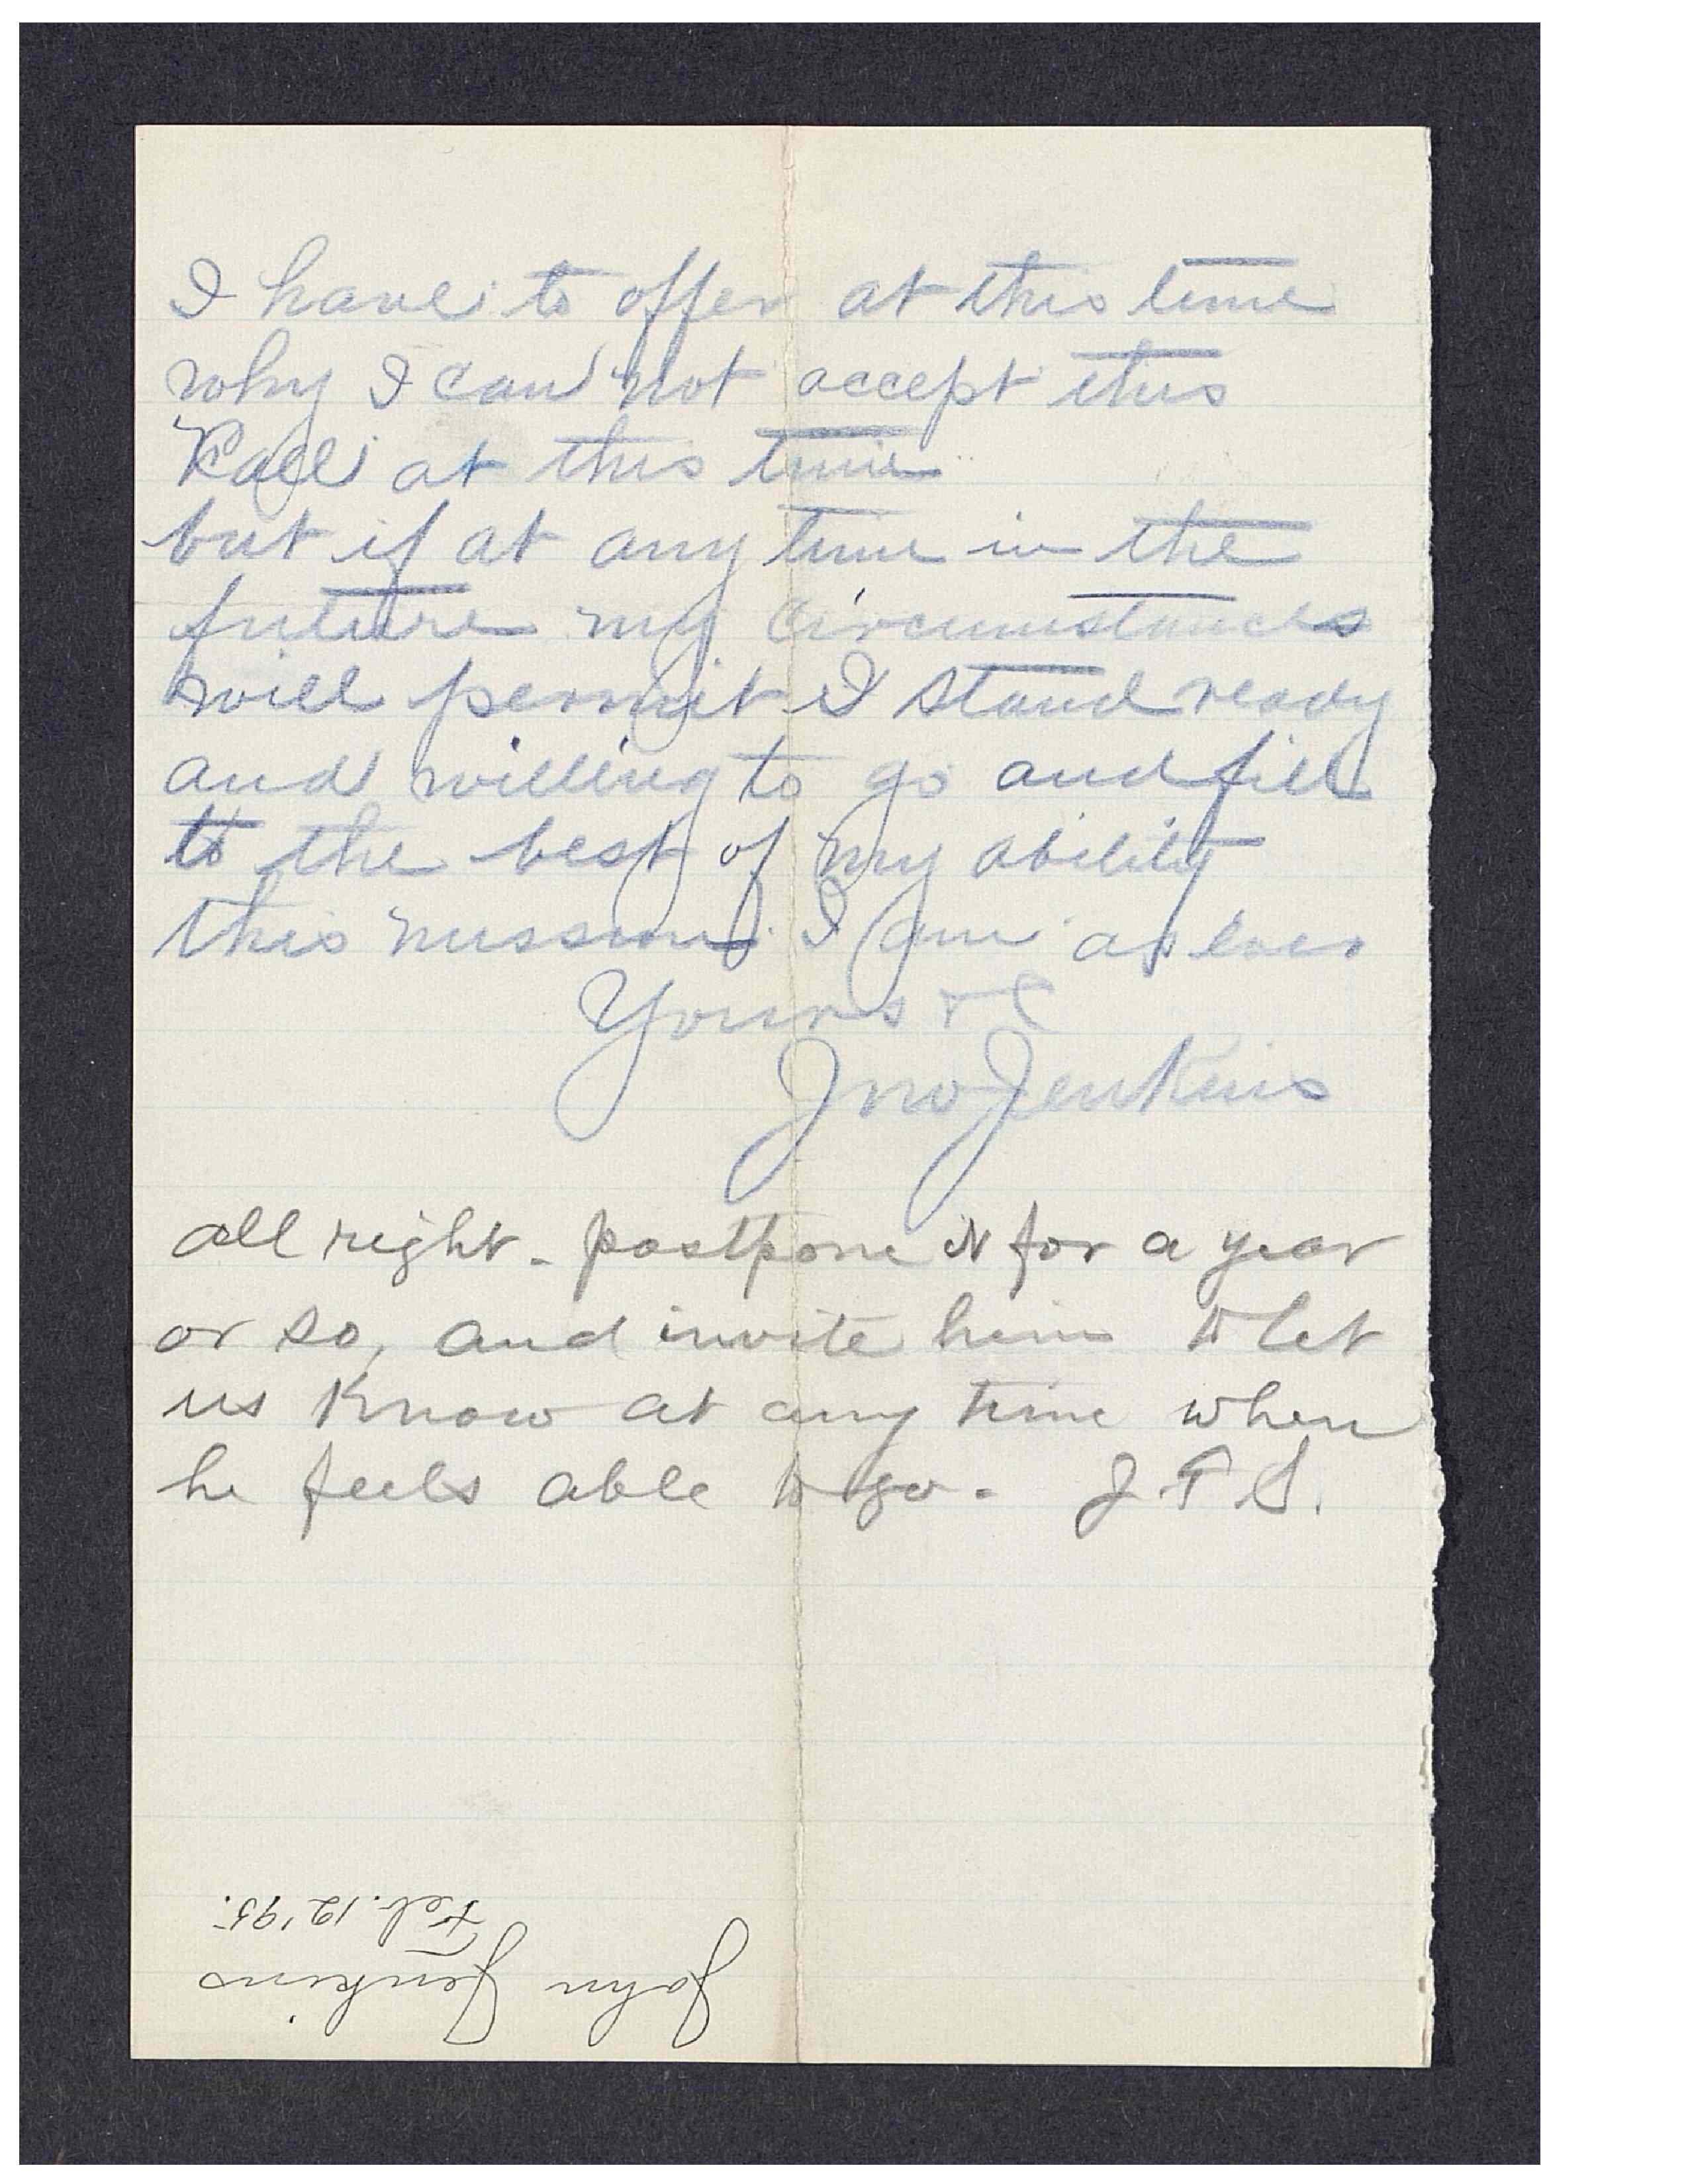 I have to offer at this time
why I can not accept this
Kall at this time
but if at any time in the
future my circumstances
will permit I stand ready
and willing to go and fill
to the best of my ability
this mission. I am as ever
Yours &C
Jno Jenkins
all right - postpone it for a year
or so, and invite him to let
us know at any time when
he feels able to go - J F S.
John Jenkins
Feb. 12 '95.